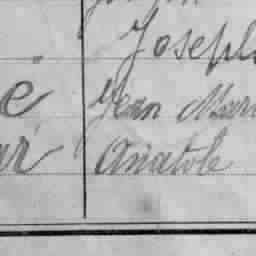 Joseph
é Jean Mari
ar Anatole